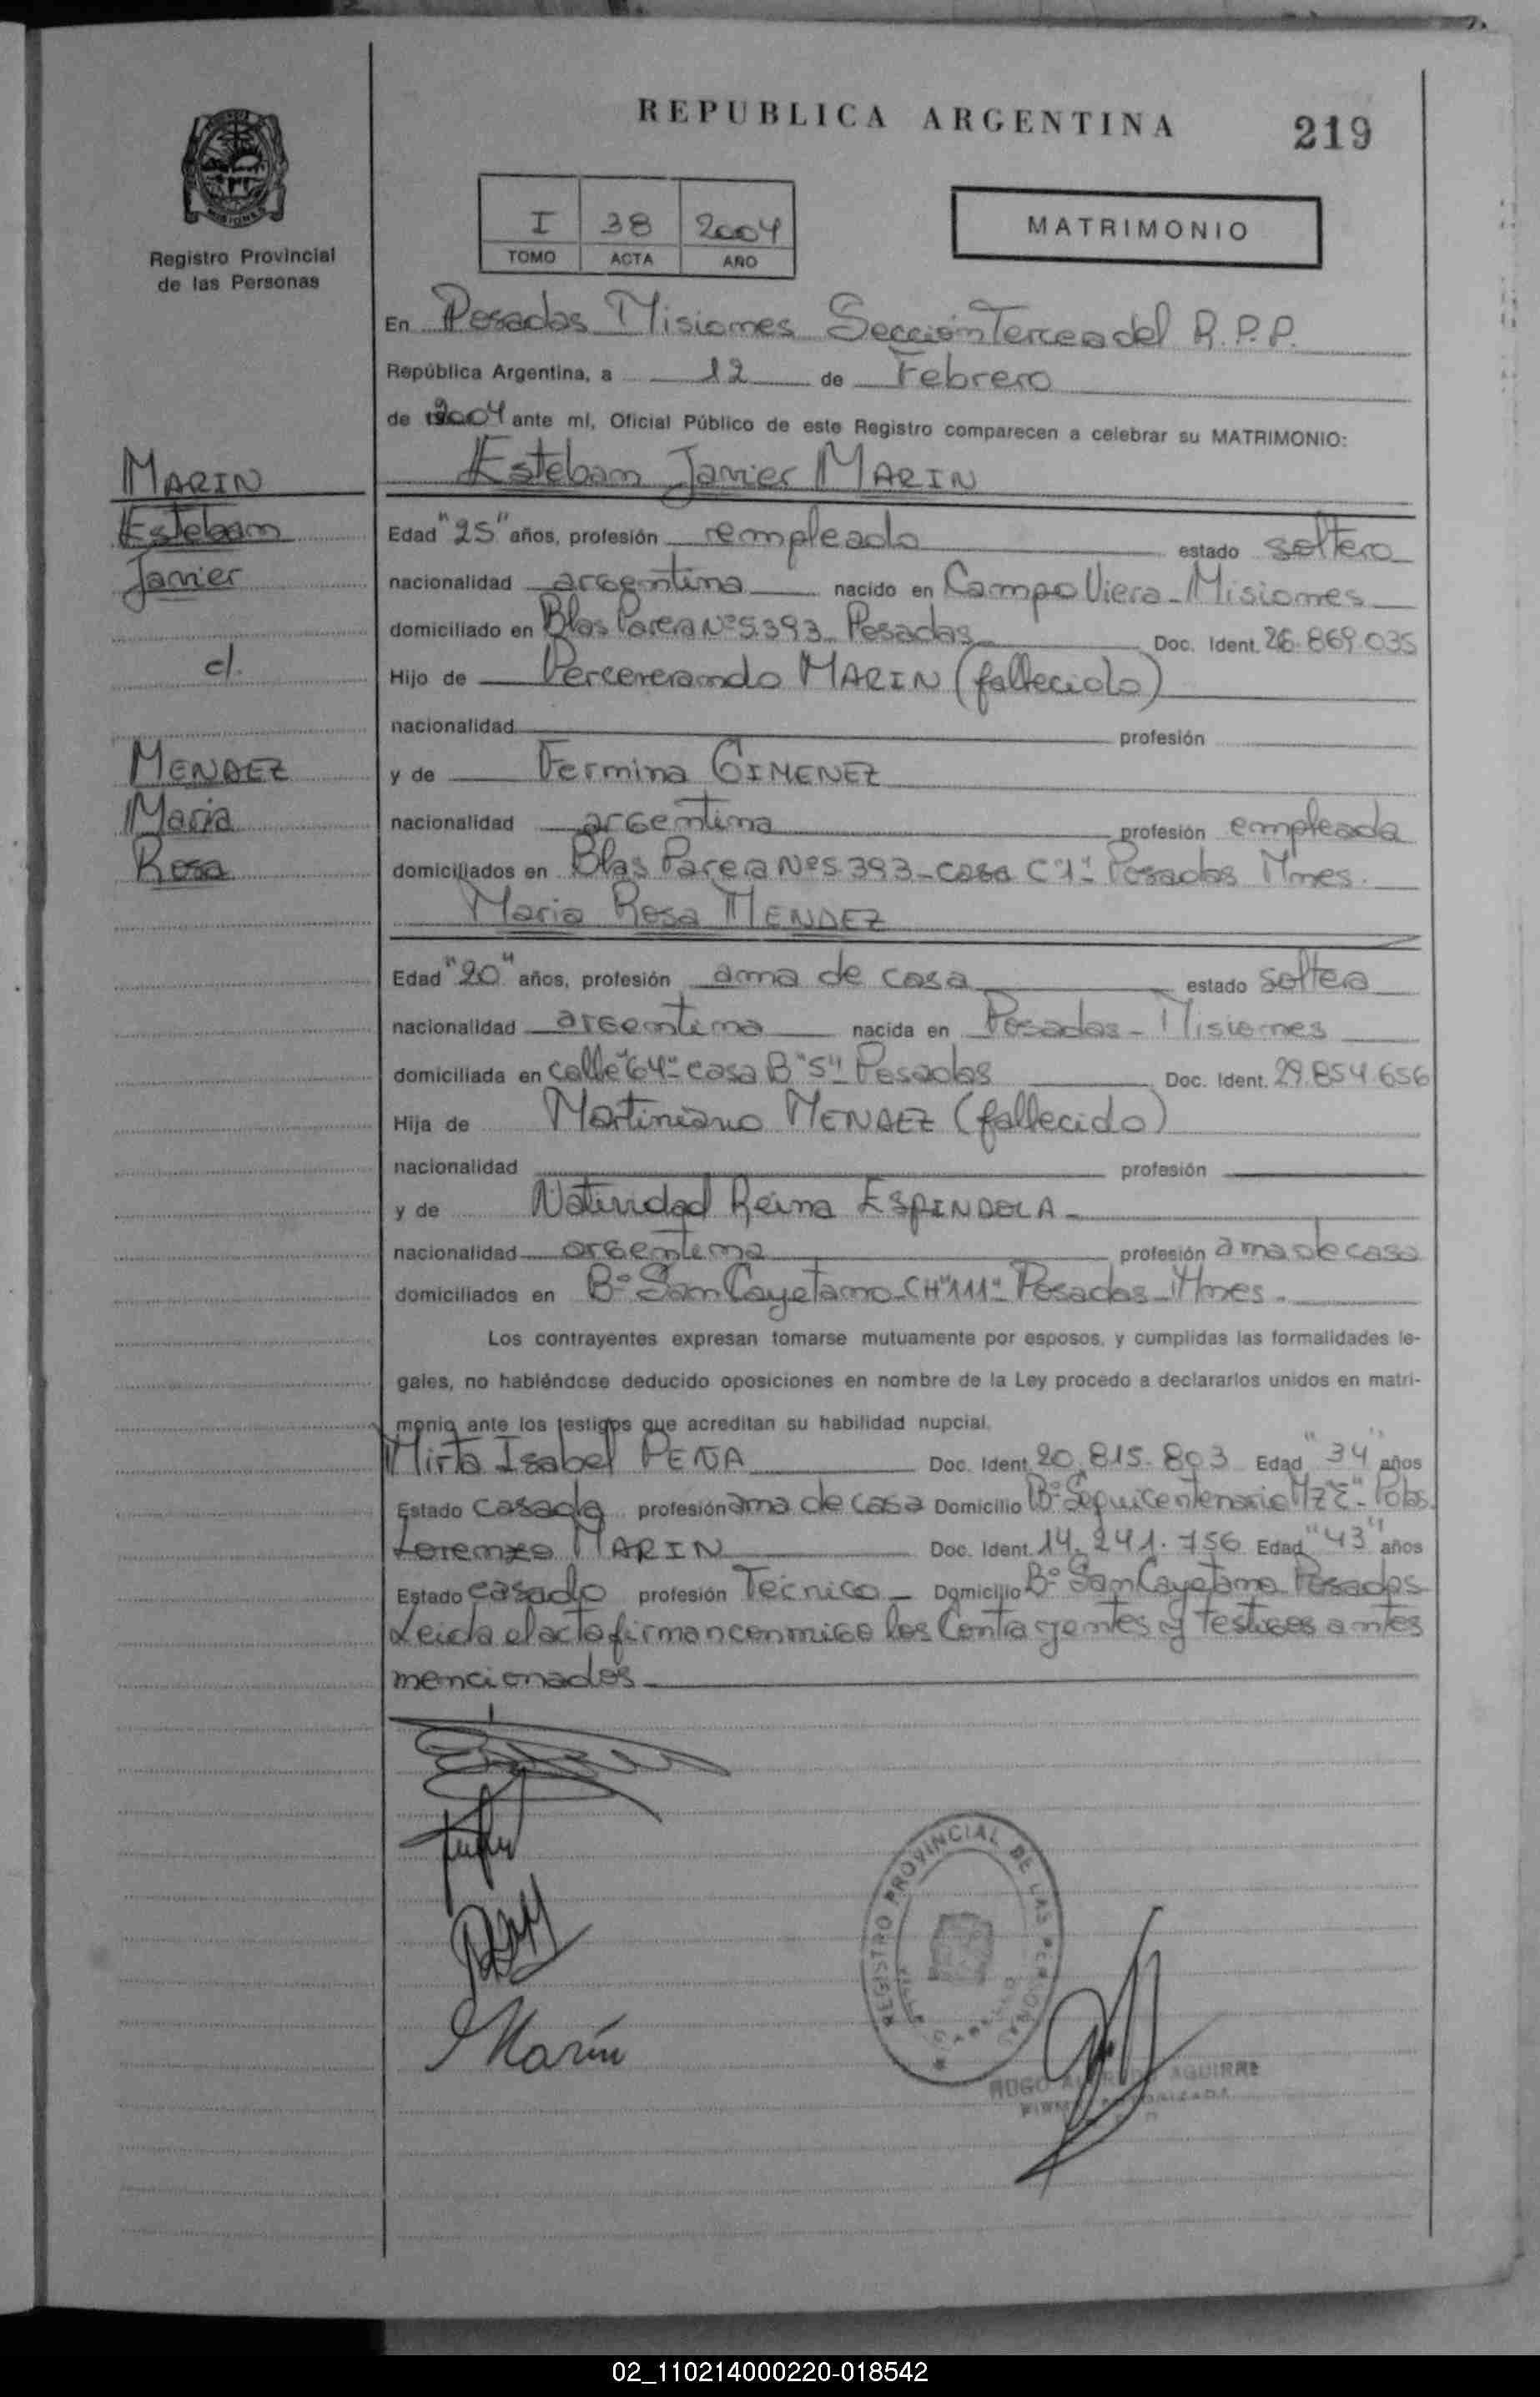 REPUBLICA ARGENTINA
219
Registro Provincial
de las Personas
I 38 2004
TOMO ACTA AÑO
MATRIMONIO
En Posadas Misiones Sección Tercera del R.P.P.
República Argentina, a 12 de Febrero
de 2004 ante mí, Oficial Público de este Registro comparecen a celebrar su MATRIMONIO:
MARIN
Esteban
Javier
c/.
MENDEZ
Maria
Rosa
Esteban Javier MARIN
Edad "25" años, profesión empleado estado soltero
nacionalidad argentina nacido en Campo Viera - Misiones
domiciliado en Blas Parera Nº 5.393 Posadas Doc. Ident. 26.869.035
Hijo de Percererando MARIN (fallecido)
nacionalidad profesión
y de Fermina GIMENEZ
nacionalidad argentina profesión empleada
domiciliados en Blas Parera Nº 5.393 - casa C"1" Posadas Mnes.
Maria Rosa MENDEZ
Edad "20" años, profesión ama de casa estado soltera
nacionalidad argentina nacida en Posadas - Misiones
domiciliada en calle "64" casa B"5" Posadas Doc. Ident. 29.854.656
Hija de Martiniano MENDEZ (fallecido)
nacionalidad profesión
y de Natividad Reina ESPINDOLA -
nacionalidad argentina profesión ama de casa
domiciliados en Bº San Cayetano - CH "111" Posadas - Mnes.
Los contrayentes expresan tomarse mutuamente por esposos, y cumplidas las formalidades le-
gales, no habiéndose deducido oposiciones en nombre de la Ley procedo a declararlos unidos en matri-
monio ante los testigos que acreditan su habilidad nupcial.
Mirta Isabel PEÑA Doc. Ident. 20.815.803 Edad "34" años
Estado casada profesión ama de casa Domicilio Bº Sequicentenario Mz Pdas.
Lorenzo MARIN Doc. Ident. 14.241.756 Edad "43" años
Estado casado profesión Técnico - Domicilio Bº San Cayetano Posadas
Leida el acta firman conmigo los Contrayentes y testigos antes
mencionados
Marín
REGISTRO PROVINCIAL DE LAS PERSONAS
HUGO AGUIRRE
FIRMA AUTORIZADA
02_110214000220-018542